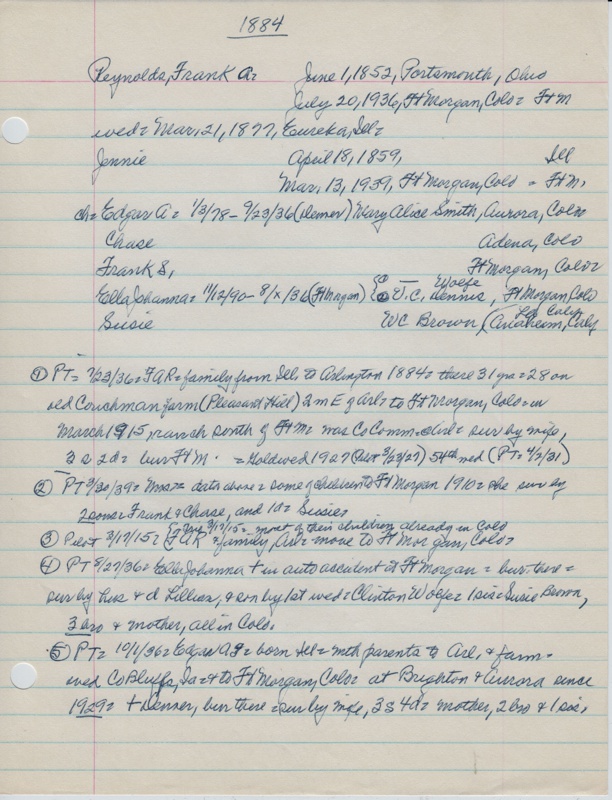 1884
Reynolds, Frank A= June 1, 1852, Portsmouth, Ohio
July 20, 1936, Ft Morgan, Colo= Ft M
wed= Mar, 21, 1877, Eureka, Ill=
Jennie April 18, 1859, Ill
Mar, 13, 1939, Ft Morgan, Colo = Ft M,
ch= Edgar A= 1/3/78- 9/23/36 (Denver) Mary Alice Smith, Aurora, Colo=
Chase Adena, Colo
Frank S, Ft Morgan, Colo=
Ella Johanna= 11/12/90- 8/x/36 (Ft Morgan) Wolfe V.C. Dennis, Ft Morgan, Colo
Susie WC Brown (Anaheim, Calif
① PT= 7/23/36= FAR= family from Ill, to Arlington 1884= there 31 yrs= 28 on
old Couchman farm (Pleasant Hill) 2 m E of Arl= to Ft Morgan, Colo= in
March 1915, ranch south of Ft M= was Co Comm. = sur by wife,
3 s 2 d= bur Ft M. = Gold wed 1927 3/23/27) 54th wed (PT= 4/2/31)
② PT 3/30/39= Mrs= data above = some of children to Ft Morgan 1910= she sur by
2 sons= Frank & Chase, and 1 d= Susie=
③ Pilot 3/17/15= FAR & family, Arl= move to Ft Morgan, Colo= 3/17/15= most of their children already in Colo
④ PT 8/27/36= Ella Johanna + in auto accident at Ft Morgan = bur there =
sur by hus & d Lillian, & son by 1st wed= Clinton Wolfe= 1 sis= Susie Brown,
3 bro & mother, all in Colo.
⑤ PT= 10/1/36= Edgar A= born Ill= with parents to Arl, & farm=
wed Co Bluffs, Ia= & to Ft Morgan, Colo= at Brighton & Aurora since
1929= + Denver, bur there= sur by wife, 3 s 4 d= mother, 2 bro & 1 sis,